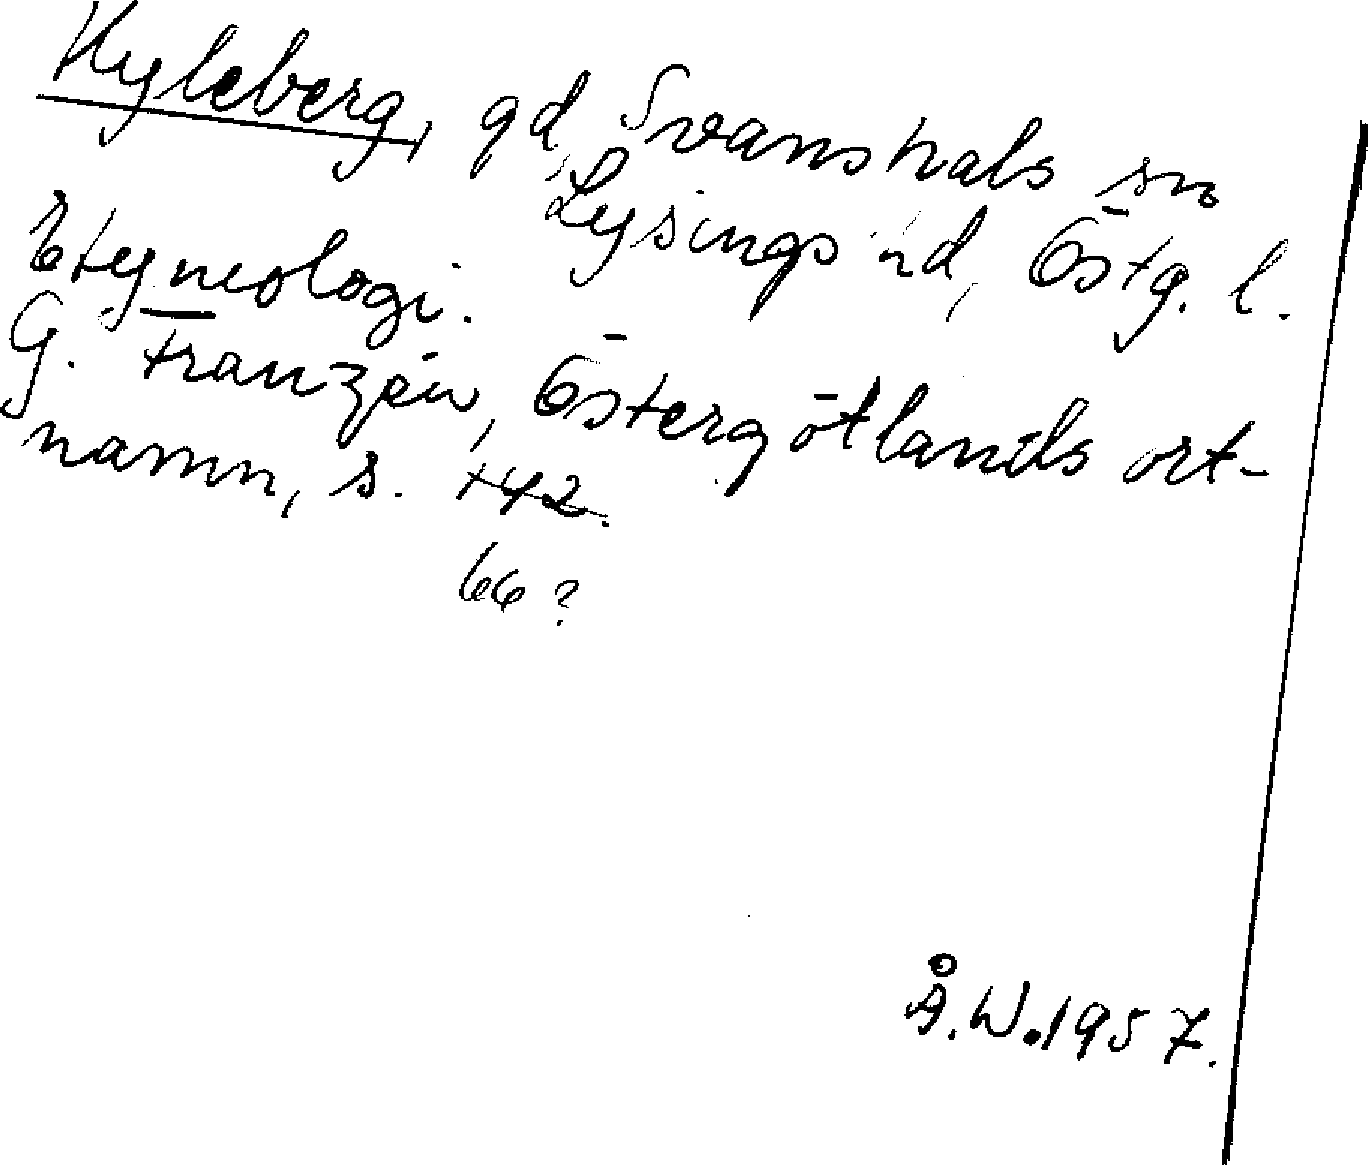 Hyleberg, gd, Svanshals sn
Lysings hd, Östg. l.
Etymologi.
G. Franzén, Östergötlands ort-
namn, s. 142.
66?
Å.W.1957.